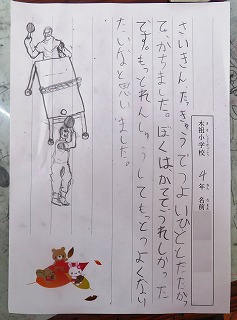 木祖小学校 4年 名前
さいきんたっきゅうでつよいひととたたかっ
て、かちました。ぼくは、かててうれしかった
です。もっとれんしゅうしてもっとつよくなり
たいなと思いました。